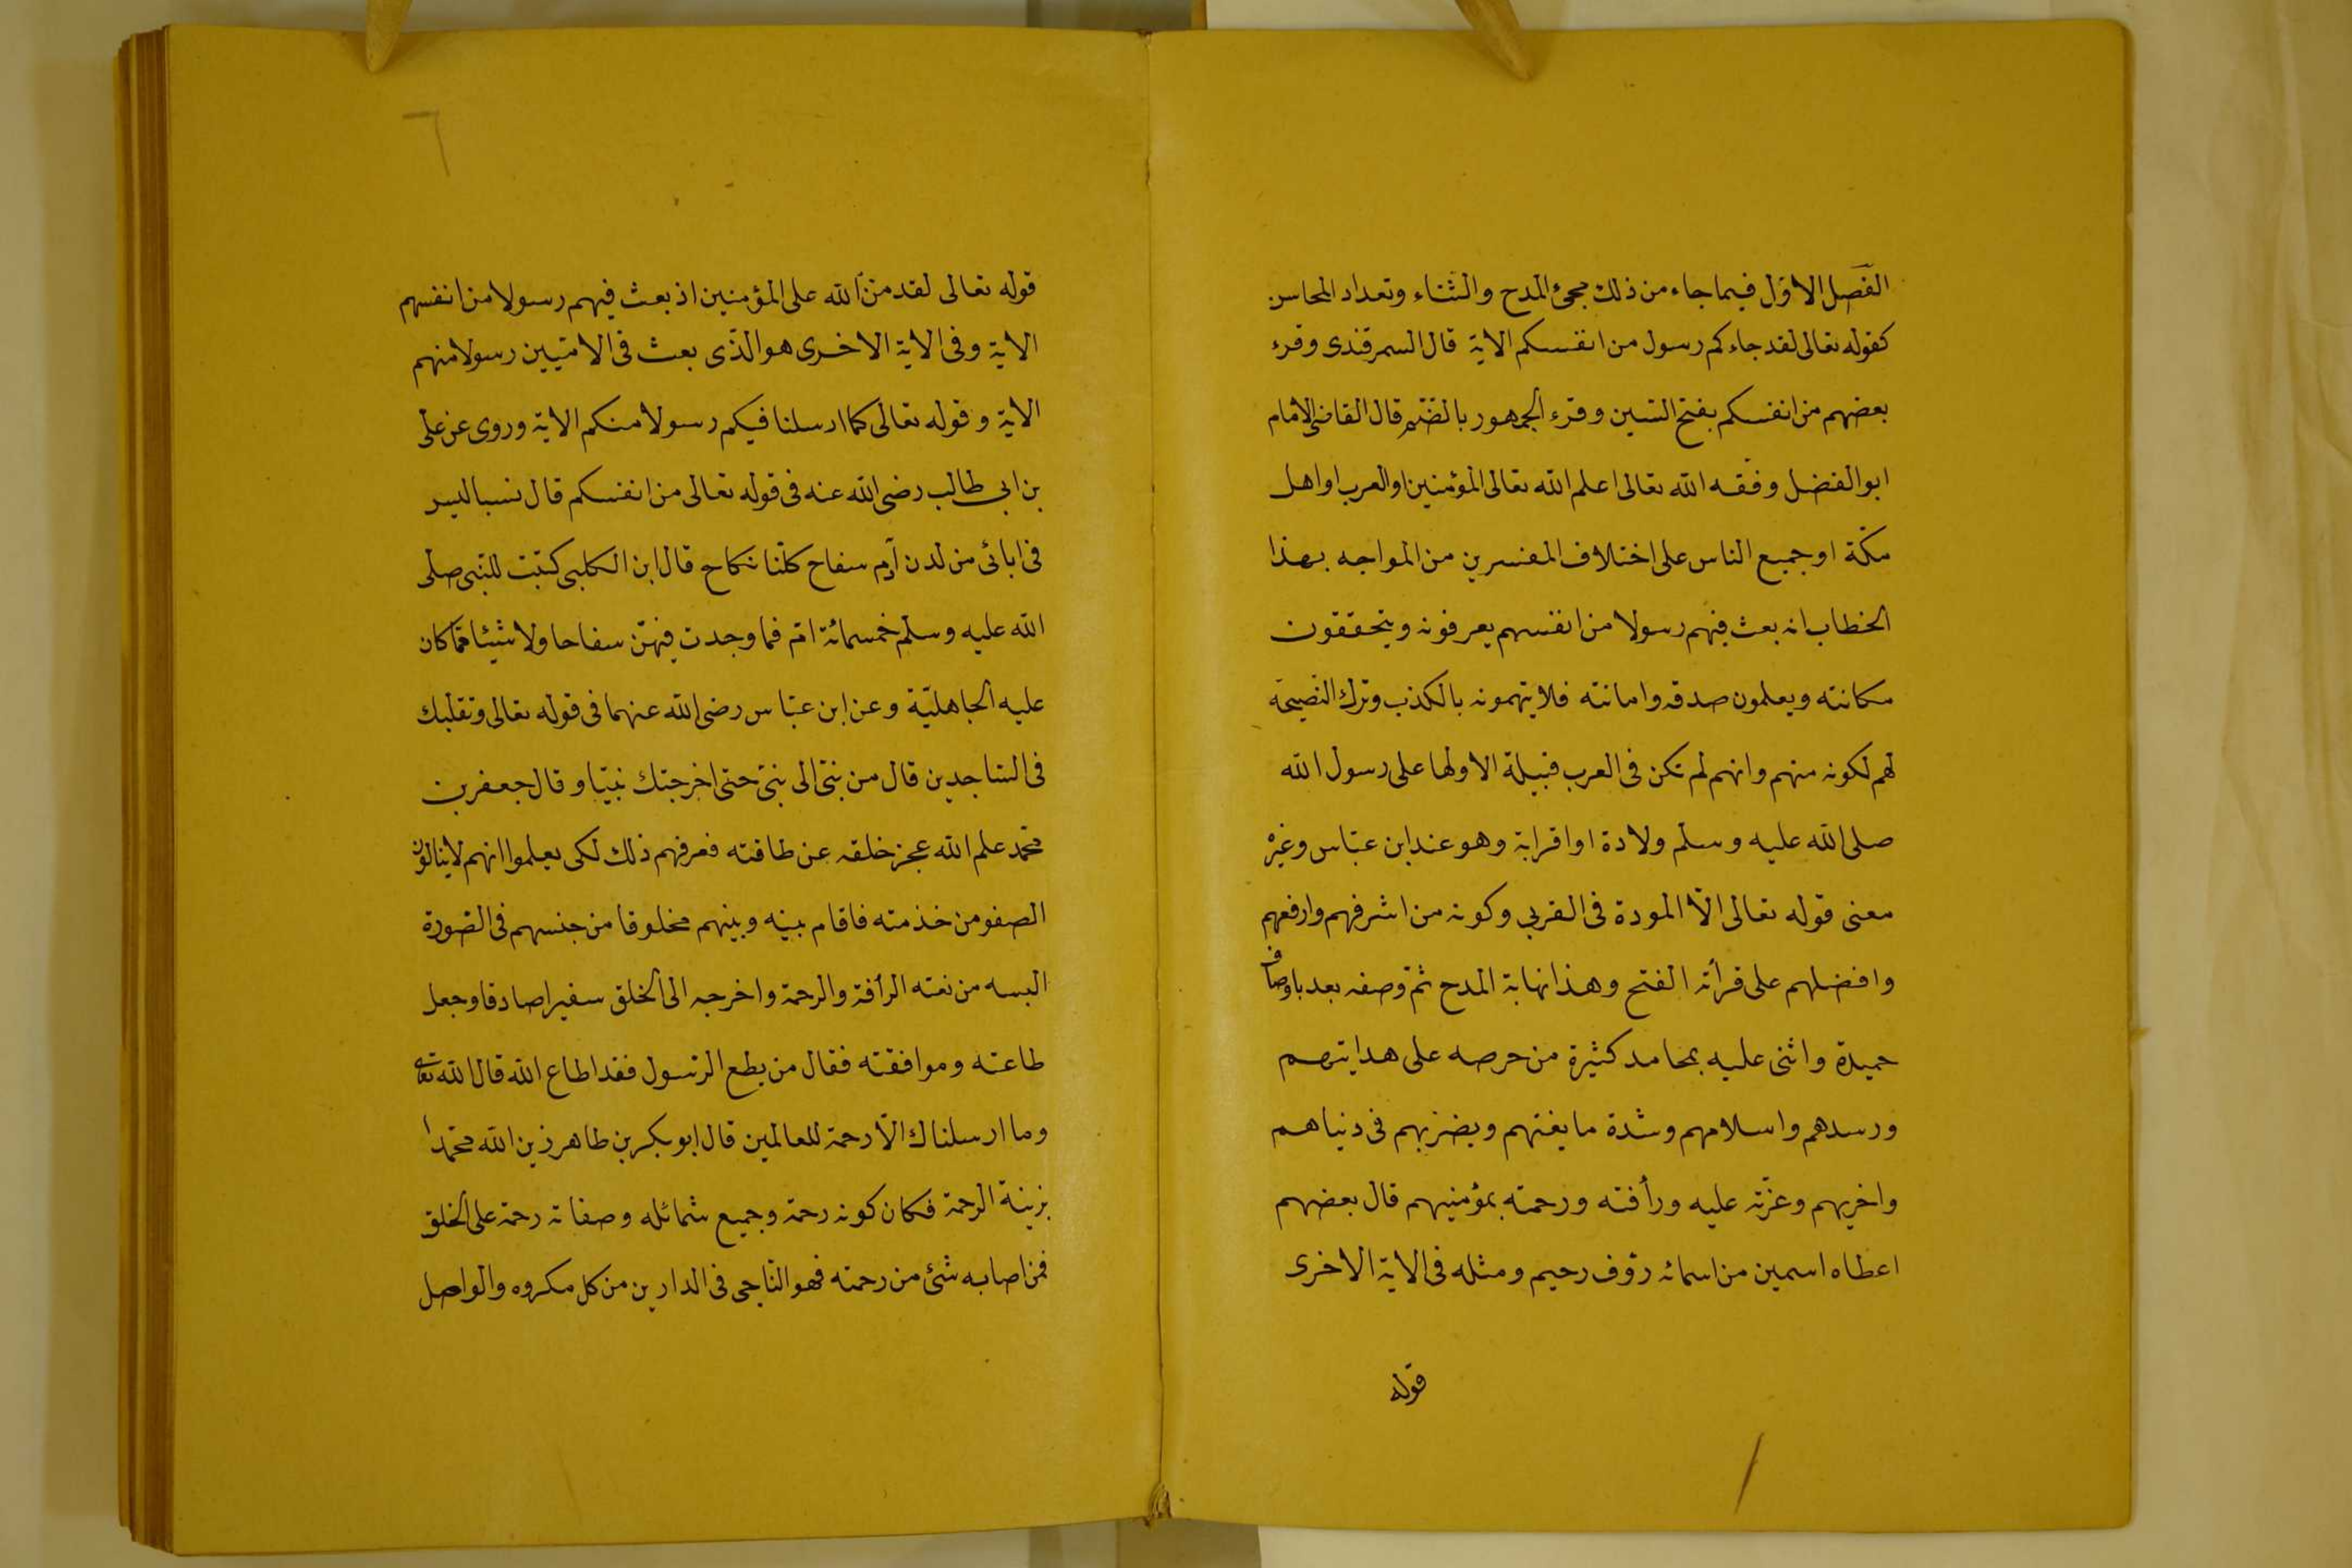 الفصل الاوّل فيما جاء من ذلك مجئ المدح والثناء وتعداد المحاسن
كقوله تعالى لقد جاءكم رسول من انفسكم الاية قال السمرقندى وقرء
بعضهم من انفسكم بفتح السين وقرء الجمهور بالضّم قال القاضى الامام
ابو الفضل وفّقه الله تعالى اعلم الله تعالى المؤمنين او العرب او اهل
مكّة او جميع الناس على اختلاف المفسرين من المواجه بهذا
الخطاب انه بعث فيهم رسولا من انفسهم يعرفونه ويتحققون
مكانته ويعلمون صدقه وامانته فلا يتهمونه بالكذب وترك النّصيحة
لهم لكونه منهم وانهم لم تكن فى العرب قبيلة الا ولها على رسول الله
صلى الله عليه وسلّم ولادة او اقرابة وهو عند ابن عبّاس وغيره
معنى قوله تعالى الّا المودة فى القربى وكونه من اشرفهم وارفعهم
وافضلهم على قرأته الفتح وهذا نهاية المدح ثمّ وصفه بعد باوصاف
حميدة واثنى عليه بمحامد كثيرة من حرصه على هدايتهم
ورسدهم واسلامهم وشدة ما يغتهم ويضربهم فى دنياهم
واخريهم وعزّته عليه ورأفته ورحمته بمؤمنيهم قال بعضهم
اعطاه اسمين من اسمائه رؤف رحيم ومثله فى الاية الاخرى
قوله
٦
قوله تعالى لقد منّ الله على المؤمنين اذ بعث فيهم رسولا من انفسهم
الاية وفى الاية الاخرى هو الذّى بعث فى الاميّين رسولا منهم
الاية وقوله تعالى كما ارسلنا فيكم رسولا منكم الاية وروى عن على
بن ابى طالب رضى الله عنه فى قوله تعالى من انفسكم قال نسبا ليس
فى ابائى من لدن آدم سفاح كلّنا نكاح قال ابن الكلبى كتبت للنّبى صلى
الله عليه وسلّم خمسمائة امّ فما وجدت فيهنّ سفاحا ولا شيئا ممّا كان
عليه الجاهليّة وعن ابن عبّاس رضى الله عنهما فى قوله تعالى وتقلبك
فى السّاجدين قال من نبىّ الى نبىّ حتى اخرجتك نبيّا وقال جعفر بن
محمّد علم الله عجز خلقه عن طاقته فعرفهم ذلك لكى يعلموا انهم لا ينالون
الصفو من خذمته فاقام بينه وبينهم مخلوقا من جنسهم فى الصّورة
البسه من نعته الرأفة والرحمة واخرجه الى الخلق سفيرا صادقا وجعل
طاعته وموافقته فقال من يطع الرّسول فقد اطاع الله قال الله تعالى
وما ارسلناك الّا رحمة للعالمين قال ابو بكر بن طاهر زين الله محمّدا
بزينة الرحمة فكان كونه رحمة وجميع شمائله وصفاته رحمة على الخلق
فمن اصابه شئ من رحمته فهو النّاجى فى الدارين من كل مكروه والواصل